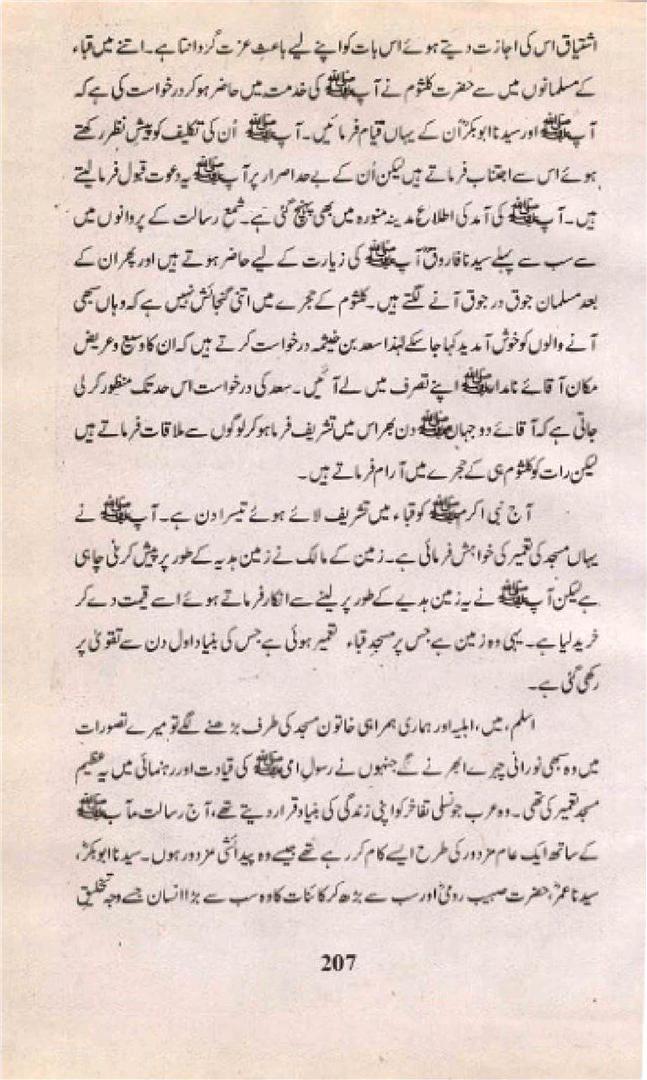 اشتیاق اس کی اجازت دیتے ہوئے اس بات کو اپنے لیے باعثِ عزت گردانتا ہے۔ اتنے میں قباء
کے مسلمانوں میں سے حضرت کلثوم نے آپ ﷺ کی خدمت میں حاضر ہو کر درخواست کی ہے کہ
آپ ﷺ اور سیدنا ابوبکرؓ ان کے یہاں قیام فرمائیں۔ آپ ﷺ اُن کی تکلیف کو پیشِ نظر رکھتے
ہوئے اس سے اجتناب فرماتے ہیں لیکن اُن کے بے حد اصرار پر آپ ﷺ یہ دعوت قبول فرما لیتے
ہیں۔ آپ ﷺ کی آمد کی اطلاع مدینہ منورہ میں بھی پہنچ گئی ہے۔ شمع رسالت کے پروانوں میں
سے سب سے پہلے سیدنا فاروقؓ آپ ﷺ کی زیارت کے لیے حاضر ہوتے ہیں اور پھر ان کے
بعد مسلمان جوق در جوق آنے لگتے ہیں۔ کلثوم کے حجرے میں اتنی گنجائش نہیں ہے کہ وہاں سبھی
آنے والوں کو خوش آمدید کہا جا سکے لہٰذا سعد بن خیثمہ درخواست کرتے ہیں کہ ان کا وسیع و عریض
مکان آقائے نامدار ﷺ اپنے تصرف میں لے آئیں۔ سعد کی درخواست اس حد تک منظور کر لی
جاتی ہے کہ آقائے دو جہاں ﷺ دن بھر اس میں تشریف فرما ہو کر لوگوں سے ملاقات فرماتے ہیں
لیکن رات کو کلثوم ہی کے حجرے میں آرام فرماتے ہیں۔
آج نبی اکرم ﷺ کو قباء میں تشریف لائے ہوئے تیسرا دن ہے۔ آپ ﷺ نے
یہاں مسجد کی تعمیر کی خواہش فرمائی ہے۔ زمین کے مالک نے زمین ہدیہ کے طور پر پیش کرنی چاہی
ہے لیکن آپ ﷺ نے یہ زمین ہدیے کے طور پر لینے سے انکار فرماتے ہوئے اسے قیمت دے کر
خرید لیا ہے۔ یہی وہ زمین ہے جس پر مسجدِ قباء تعمیر ہوئی ہے جس کی بنیاد اول دن سے تقویٰ پر
رکھی گئی ہے۔
اسلم، میں، اہلیہ اور ہماری ہمراہی خاتون مسجد کی طرف بڑھنے لگے تو میرے تصورات
میں وہ سبھی نورانی چہرے ابھرنے لگے جنہوں نے رسول امی ﷺ کی قیادت اور رہنمائی میں یہ عظیم
مسجد تعمیر کی تھی۔ وہ عرب جو نسلی تفاخر کو اپنی زندگی کی بنیاد قرار دیتے تھے، آج رسالت مآب ﷺ
کے ساتھ ایک عام مزدور کی طرح ایسے کام کر رہے تھے جیسے وہ پیدائشی مزدور ہوں۔ سیدنا ابوبکرؓ،
سیدنا عمرؓ، حضرت صہیب رومیؓ اور سب سے بڑھ کر کائنات کا وہ سب سے بڑا انسان جسے وجہِ تخلیقِ
207